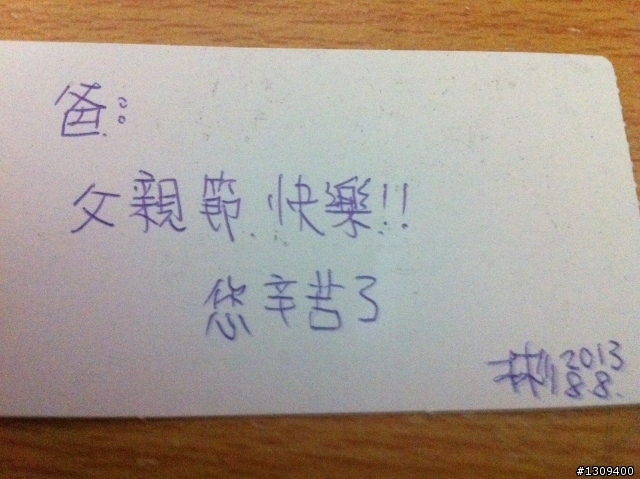 爸:
父親節快樂!!
您辛苦了
彬 2013
8.8.
#1309400